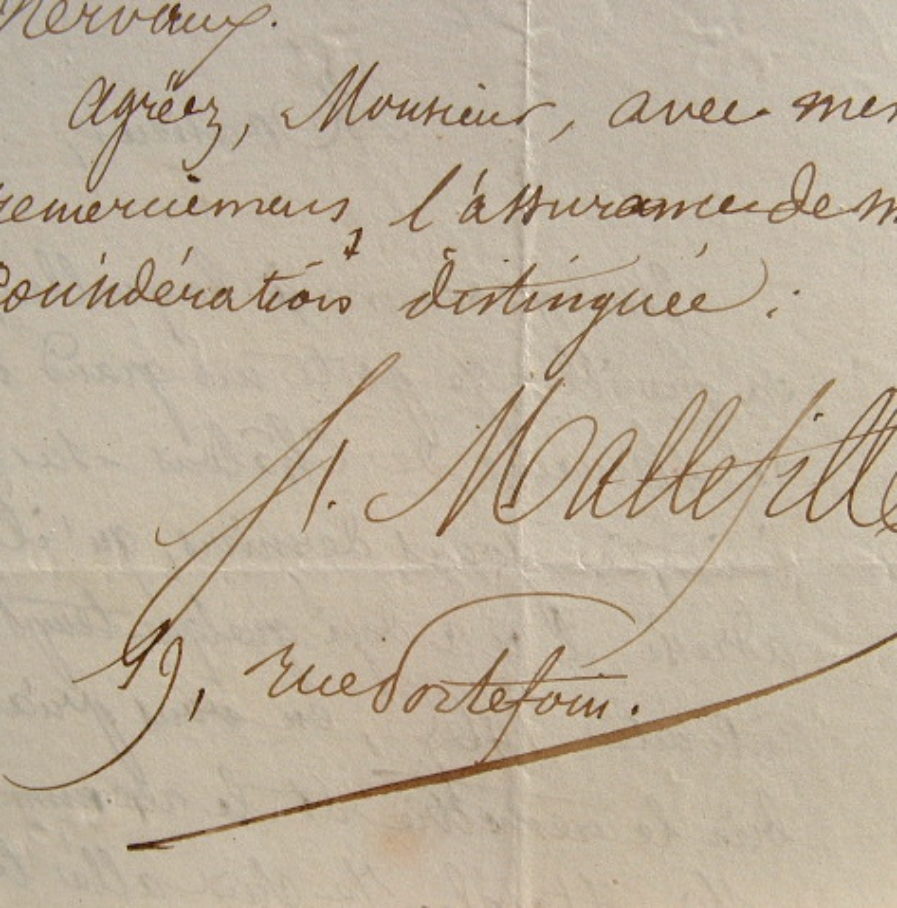 Nervaux.
Agréez, Monsieur, avec mes
remerciemens, l'assurance de m
considération distinguée.
f. Mallefille
9, rue Portefoin.